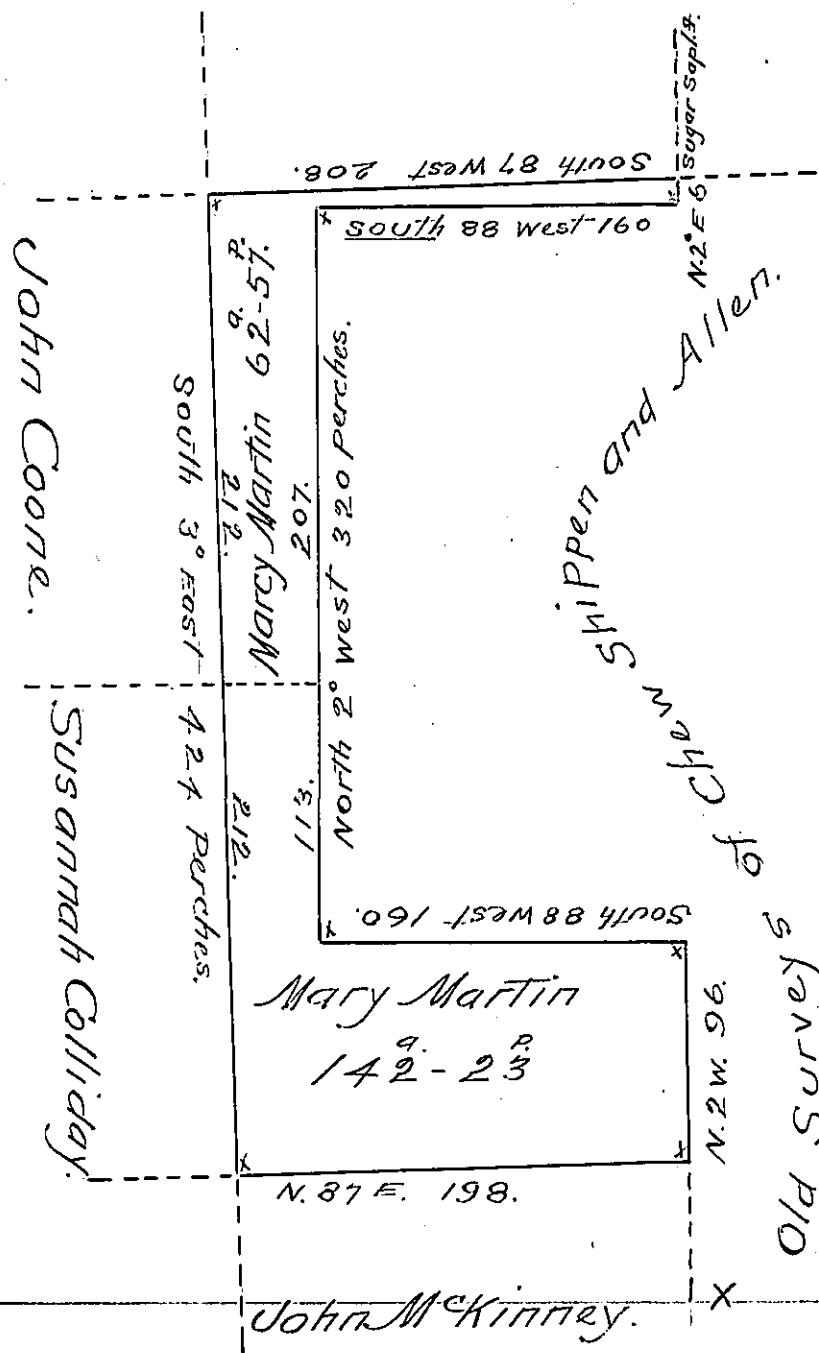 Sugar Sapl.g.
South 87 West 208.
N.2° E 6
South 88 West 160
John Coone.
South 3° East 424 Perches.
212.
Marcy Martin 62a.-57p.
207.
North 2° West 320 Perches.
Old Surveys of Chew Shippen and Allen.
Susannah Colliday.
212.
113.
South 88 West 160.
Mary Martin
142a.-23p.
N.2W. 96.
N. 87 E. 198.
John McKinney.
X